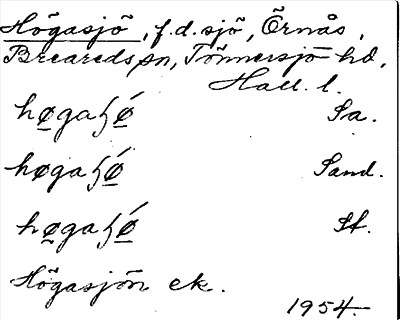 Högasjö, f.d. sjö, Örnås,
Breareds sn, Tönnersjö hd,
Hall. l.
høgaɧǿ Sa.
høgaɧǿ Sand.
høgaɧǿ St.
Högasjön ek.
1954.